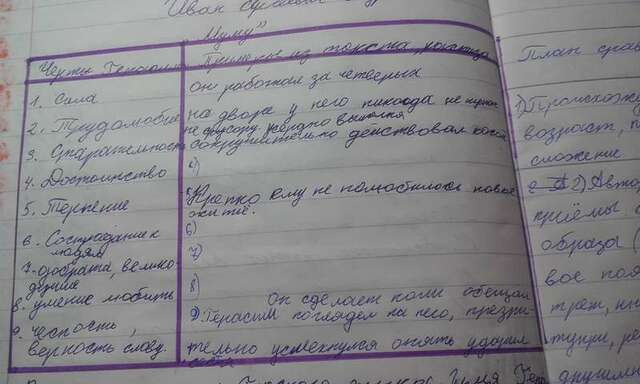 Иван
"Муму"
Черты Герасима
Примеры из текста,
1. Сила
он работал за четверых
2. Трудолюбие
на дворе у него никогда не
3. Старательность
сокрушительно действовал косой
4)
4. Достоинство
5. Терпение
Крепко ему не полюбилось новое
житьё.
6. Сострадание к
людям
6)
7. доброта, велико-
душие
7)
8. умение любить
8)
9. честность,
верность слову.
Он сделает коли обещал
9) Герасим поглядел на него, презри-
тельно усмехнулся опять ударил
себя
План срав
1) Происхож
возраст,
сложение
2) Авто
приёмы
образа (
вое поя
трет,